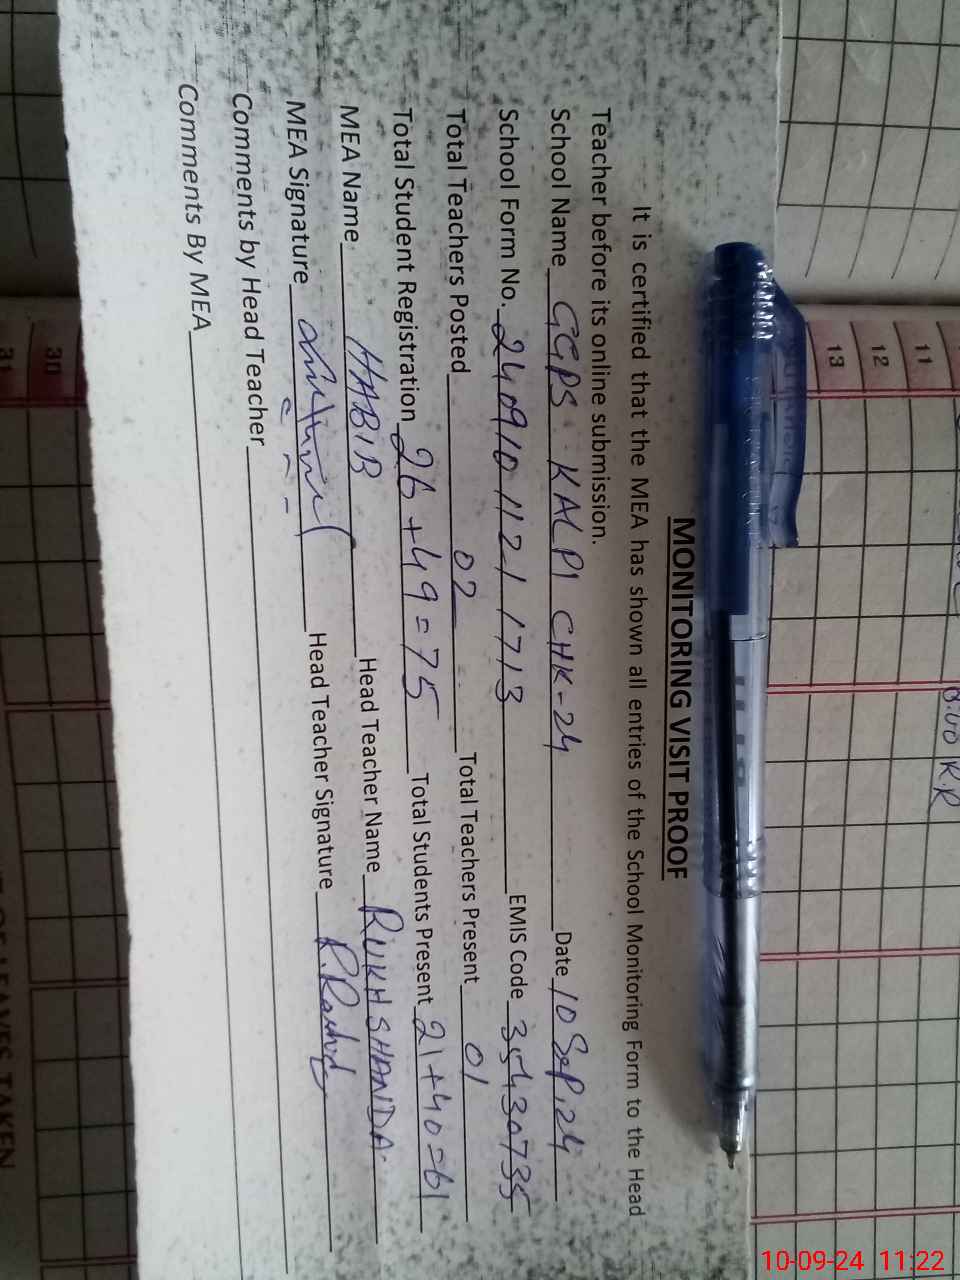 MONITORING VISIT PROOF
It is certified that the MEA has shown all entries of the School Monitoring Form to the Head
Teacher before its online submission.
School Name GGPS KALPI CHK-24 Date 10 Sep, 24
School Form No. 240910 1121 1713 EMIS Code 35430735
Total Teachers Posted 02 Total Teachers Present 01
Total Student Registration 26 + 49 = 75 Total Students Present 21 + 40 = 61
MEA Name HABIB Head Teacher Name RUKHSHANDA
MEA Signature Head Teacher Signature R.Rashid
Comments by Head Teacher
Comments By MEA
11
12
13
30
31
8:00 R.R
OF LEAVES TAKEN
10-09-24 11:22